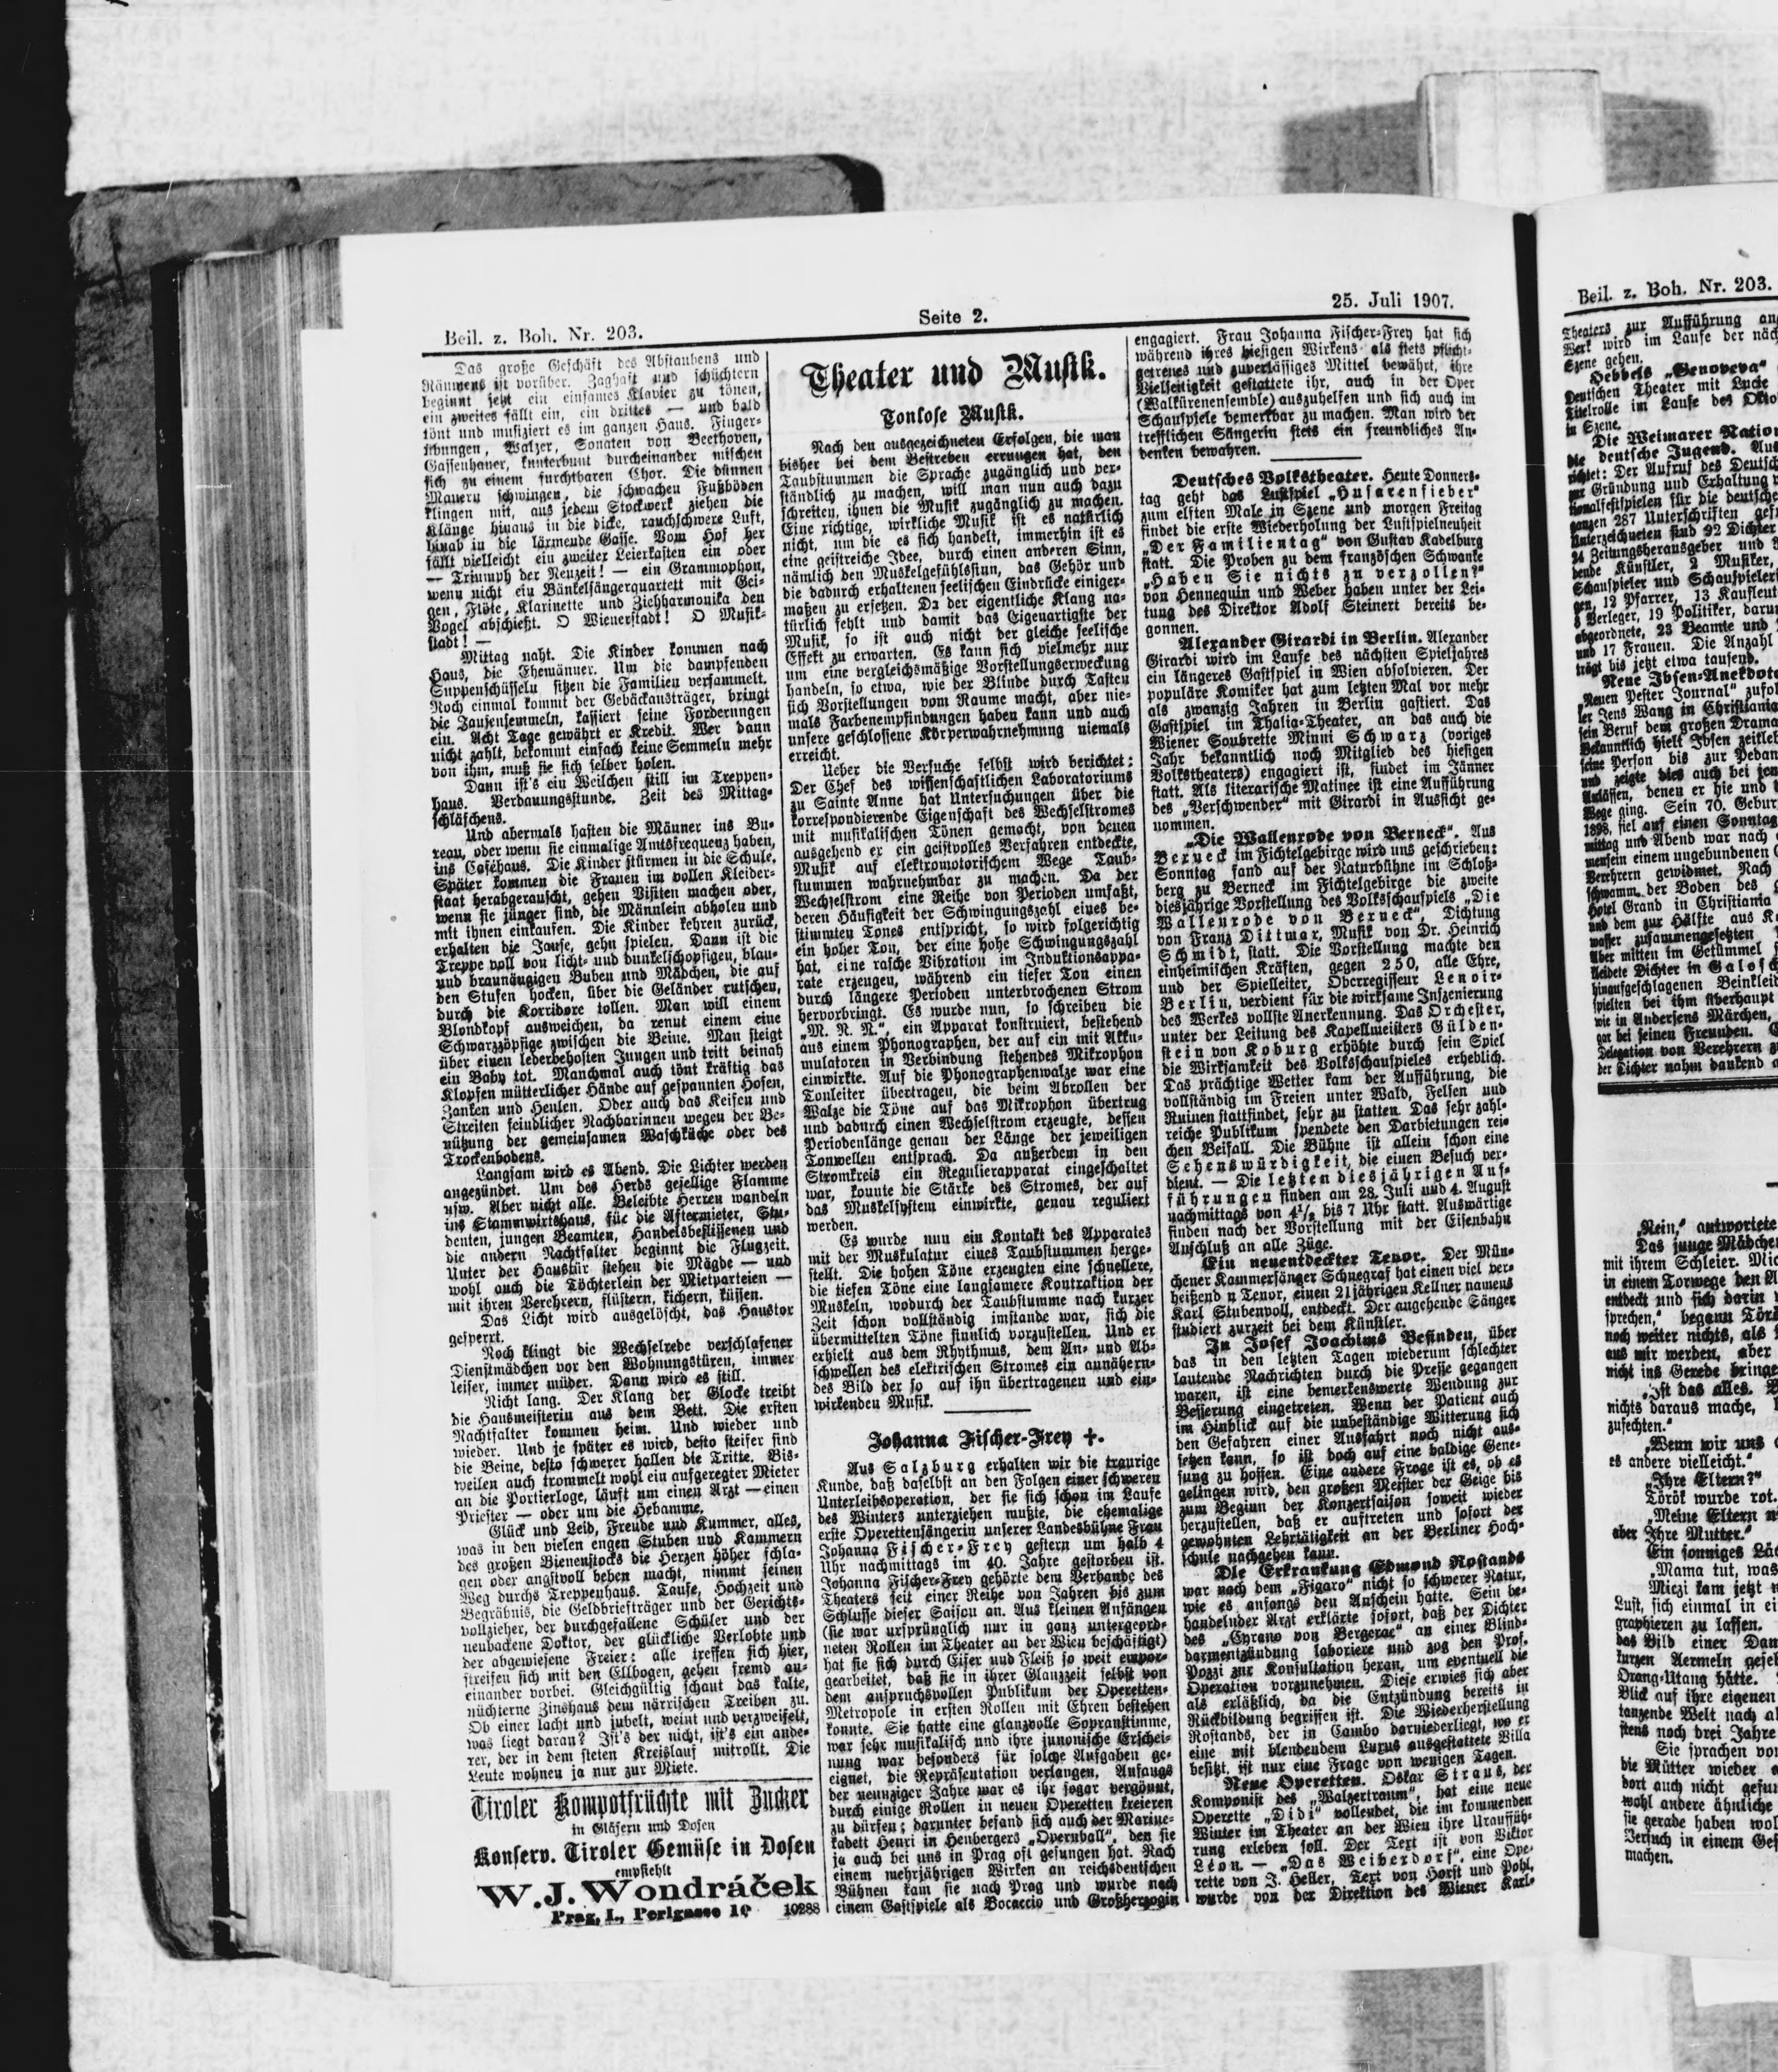 Beil. z. Boh. Nr. 203.
Seite 2.
25. Juli 1907.
Das große Geschäft des Abstaubens und
Räumens ist vorüber. Zaghaft und schüchtern
beginnt jetzt ein einsames Klavier zu tönen,
ein zweites fällt ein, ein drittes — und bald
tönt und musiziert es im ganzen Haus. Finger-
übungen, Walzer, Sonaten von Beethoven,
Gassenhauer, kunterbunt durcheinander mischen
sich zu einem furchtbaren Chor. Die dünnen
Mauern schwingen, die schwachen Fußböden
klingen mit, aus jedem Stockwerk ziehen die
Klänge hinaus in die dicke, rauchschwere Luft,
hinab in die lärmende Gasse. Vom Hof her
fällt vielleicht ein zweiter Leierkasten ein oder
— Triumph der Neuzeit! — ein Grammophon,
wenn nicht ein Bänkelsängerquartett mit Gei-
gen, Flöte, Klarinette und Ziehharmonika den
Vogel abschießt. O Wienerstadt! O Musik-
stadt! —
Mittag naht. Die Kinder kommen nach
Haus, die Ehemänner. Um die dampfenden
Suppenschüsseln sitzen die Familien versammelt.
Noch einmal kommt der Gebäckausträger, bringt
die Jausensemmeln, kassiert seine Forderungen
ein. Acht Tage gewährt er Kredit. Wer dann
nicht zahlt, bekommt einfach keine Semmeln mehr
von ihm, muß sie sich selber holen.
Dann ist's ein Weilchen still im Treppen-
haus. Verdauungsstunde. Zeit des Mittag-
schläfchens.
Und abermals hasten die Männer ins Bu-
reau, oder wenn sie einmalige Amtsfrequenz haben,
ins Caféhaus. Die Kinder stürmen in die Schule.
Später kommen die Frauen im vollen Kleider-
staat herabgerauscht, gehen Visiten machen oder,
wenn sie jünger sind, die Männlein abholen und
mit ihnen einkaufen. Die Kinder kehren zurück,
erhalten die Jause, gehn spielen. Dann ist die
Treppe voll von licht- und dunkelschopfigen, blau-
und braunäugigen Buben und Mädchen, die auf
den Stufen hocken, über die Geländer rutschen,
durch die Korridore tollen. Man will einem
Blondkopf ausweichen, da rennt einem eine
Schwarzzöpfige zwischen die Beine. Man steigt
über einen lederbehosten Jungen und tritt beinah
ein Baby tot. Manchmal auch tönt kräftig das
Klopfen mütterlicher Hände auf gespannten Hosen,
Zanken und Heulen. Oder auch das Keifen und
Streiten feindlicher Nachbarinnen wegen der Be-
nützung der gemeinsamen Waschküche oder des
Trockenbodens.
Langsam wird es Abend. Die Lichter werden
angezündet. Um des Herds gesellige Flamme
usw. Aber nicht alle. Beleibte Herren wandeln
ins Stammwirtshaus, für die Aftermieter, Stu-
denten, jungen Beamten, Handelsbeflissenen und
die andern Nachtfalter beginnt die Flugzeit.
Unter der Haustür stehen die Mägde — und
wohl auch die Töchterlein der Mietparteien —
mit ihren Verehrern, flüstern, kichern, küssen.
Das Licht wird ausgelöscht, das Haustor
gesperrt.
Noch klingt die Wechselrede verschlafener
Dienstmädchen vor den Wohnungstüren, immer
leiser, immer müder. Dann wird es still.
Nicht lang. Der Klang der Glocke treibt
die Hausmeisterin aus dem Bett. Die ersten
Nachtfalter kommen heim. Und wieder und
wieder. Und je später es wird, desto steifer sind
die Beine, desto schwerer hallen die Tritte. Bis-
weilen auch trommelt wohl ein aufgeregter Mieter
an die Portierloge, läuft um einen Arzt — einen
Priester — oder um die Hebamme.
Glück und Leid, Freude und Kummer, alles,
was in den vielen engen Stuben und Kammern
des großen Bienenstocks die Herzen höher schla-
gen oder angstvoll beben macht, nimmt seinen
Weg durchs Treppenhaus. Taufe, Hochzeit und
Begräbnis, die Geldbriefträger und der Gerichts-
vollzieher, der durchgefallene Schüler und der
neubackene Doktor, der glückliche Verlobte und
der abgewiesene Freier: alle treffen sich hier,
streifen sich mit den Ellbogen, gehen fremd an-
einander vorbei. Gleichgültig schaut das kalte,
nüchterne Zinshaus dem närrischen Treiben zu.
Ob einer lacht und jubelt, weint und verzweifelt,
was liegt daran? Ist's der nicht, ist's ein ande-
rer, der in dem steten Kreislauf mitrollt. Die
Leute wohnen ja nur zur Miete.
Tiroler Kompotfrüchte mit Zucker
in Gläsern und Dosen
Konserv. Tiroler Gemüse in Dosen
empfiehlt
W. J. Wondráček
Prag, I., Perlgasse 10 10288
Theater und Musik.
Tonlose Musik.
Nach den ausgezeichneten Erfolgen, die man
bisher bei dem Bestreben errungen hat, den
Taubstummen die Sprache zugänglich und ver-
ständlich zu machen, will man nun auch dazu
schreiten, ihnen die Musik zugänglich zu machen.
Eine richtige, wirkliche Musik ist es natürlich
nicht, um die es sich handelt, immerhin ist es
eine geistreiche Idee, durch einen anderen Sinn,
nämlich den Muskelgefühlssinn, das Gehör und
die dadurch erhaltenen seelischen Eindrücke einiger-
maßen zu ersetzen. Da der eigentliche Klang na-
türlich fehlt und damit das Eigenartigste der
Musik, so ist auch nicht der gleiche seelische
Effekt zu erwarten. Es kann sich vielmehr nur
um eine vergleichsmäßige Vorstellungserweckung
handeln, so etwa, wie der Blinde durch Tasten
sich Vorstellungen vom Raume macht, aber nie-
mals Farbenempfindungen haben kann und auch
unsere geschlossene Körperwahrnehmung niemals
erreicht.
Ueber die Versuche selbst wird berichtet:
Der Chef des wissenschaftlichen Laboratoriums
zu Sainte Anne hat Untersuchungen über die
korrespondierende Eigenschaft des Wechselstromes
mit musikalischen Tönen gemacht, von denen
ausgehend er ein geistvolles Verfahren entdeckte,
Musik auf elektromotorischem Wege Taub-
stummen wahrnehmbar zu machen. Da der
Wechselstrom eine Reihe von Perioden umfaßt,
deren Häufigkeit der Schwingungszahl eines be-
stimmten Tones entspricht, so wird folgerichtig
ein hoher Ton, der eine hohe Schwingungszahl
hat, eine rasche Vibration im Induktionsappa-
rate erzeugen, während ein tiefer Ton einen
durch längere Perioden unterbrochenen Strom
hervorbringt. Es wurde nun, so schreiben die
„M. N. N.“, ein Apparat konstruiert, bestehend
aus einem Phonographen, der auf ein mit Akku-
mulatoren in Verbindung stehendes Mikrophon
einwirkte. Auf die Phonographenwalze war eine
Tonleiter übertragen, die beim Abrollen der
Walze die Töne auf das Mikrophon übertrug
und dadurch einen Wechselstrom erzeugte, dessen
Periodenlänge genau der Länge der jeweiligen
Tonwellen entsprach. Da außerdem in den
Stromkreis ein Regulierapparat eingeschaltet
war, konnte die Stärke des Stromes, der auf
das Muskelsystem einwirkte, genau reguliert
werden.
Es wurde nun ein Kontakt des Apparates
mit der Muskulatur eines Taubstummen herge-
stellt. Die hohen Töne erzeugten eine schnellere,
die tiefen Töne eine langsamere Kontraktion der
Muskeln, wodurch der Taubstumme nach kurzer
Zeit schon vollständig imstande war, sich die
übermittelten Töne sinnlich vorzustellen. Und er
erhielt aus dem Rhythmus, dem An- und Ab-
schwellen des elektrischen Stromes ein annähern-
des Bild der so auf ihn übertragenen und ein-
wirkenden Musik.
Johanna Fischer-Frey †.
Aus Salzburg erhalten wir die traurige
Kunde, daß daselbst an den Folgen einer schweren
Unterleibsoperation, der sie sich schon im Laufe
des Winters unterziehen mußte, die ehemalige
erste Operettensängerin unserer Landesbühne Frau
Johanna Fischer-Frey gestern um halb 4
Uhr nachmittags im 40. Jahre gestorben ist.
Johanna Fischer-Frey gehörte dem Verbande des
Theaters seit einer Reihe von Jahren bis zum
Schlusse dieser Saison an. Aus kleinen Anfängen
(sie war ursprünglich nur in ganz untergeord-
neten Rollen im Theater an der Wien beschäftigt)
hat sie sich durch Eifer und Fleiß so weit empor-
gearbeitet, daß sie in ihrer Glanzzeit selbst von
dem anspruchsvollen Publikum der Operetten-
Metropole in ersten Rollen mit Ehren bestehen
konnte. Sie hatte eine glanzvolle Sopranstimme,
war sehr musikalisch und ihre junonische Erschei-
nung war besonders für solche Aufgaben ge-
eignet, die Repräsentation verlangen. Anfangs
der neunziger Jahre war es ihr sogar vergönnt,
durch einige Rollen in neuen Operetten kreieren
zu dürfen; darunter befand sich auch der Marine-
kadett Henri in Heubergers „Opernball“, den sie
ja auch bei uns in Prag oft gesungen hat. Nach
einem mehrjährigen Wirken an reichsdeutschen
Bühnen kam sie nach Prag und wurde nach
einem Gastspiele als Bocaccio und Großherzogin
engagiert. Frau Johanna Fischer-Frey hat sich
während ihres hiesigen Wirkens als stets pflicht-
getreues und zuverlässiges Mittel bewährt, ihre
Vielseitigkeit gestattete ihr, auch in der Oper
(Walkürenensemble) auszuhelfen und sich auch im
Schauspiele bemerkbar zu machen. Man wird der
trefflichen Sängerin stets ein freundliches An-
denken bewahren.
Deutsches Volkstheater. Heute Donners-
tag geht das Lustspiel „Husarenfieber“
zum elften Male in Szene und morgen Freitag
findet die erste Wiederholung der Lustspielneuheit
„Der Familientag“ von Gustav Kadelburg
statt. Die Proben zu dem französchen Schwanke
„Haben Sie nichts zu verzollen?“
von Hennequin und Weber haben unter der Lei-
tung des Direktor Adolf Steinert bereits be-
gonnen.
Alexander Girardi in Berlin. Alexander
Girardi wird im Laufe des nächsten Spieljahres
ein längeres Gastspiel in Wien absolvieren. Der
populäre Komiker hat zum letzten Mal vor mehr
als zwanzig Jahren in Berlin gastiert. Das
Gastspiel im Thalia-Theater, an das auch die
Wiener Soubrette Minni Schwarz (voriges
Jahr bekanntlich noch Mitglied des hiesigen
Volkstheaters) engagiert ist, findet im Jänner
statt. Als literarische Matinee ist eine Aufführung
des „Verschwender“ mit Girardi in Aussicht ge-
nommen.
„Die Wallenrode von Berneck“. Aus
Berneck im Fichtelgebirge wird uns geschrieben:
Sonntag fand auf der Naturbühne im Schloß-
berg zu Berneck im Fichtelgebirge die zweite
diesjährige Vorstellung des Volksschauspiels „Die
Wallenrode von Berneck“, Dichtung
von Franz Dittmar, Musik von Dr. Heinrich
Schmidt, statt. Die Vorstellung machte den
einheimischen Kräften, gegen 250, alle Ehre,
und der Spielleiter, Oberregisseur Lenoir-
Berlin, verdient für die wirksame Inszenierung
des Werkes vollste Anerkennung. Das Orchester,
unter der Leitung des Kapellmeisters Gülden-
stein von Koburg erhöhte durch sein Spiel
die Wirksamkeit des Volksschauspieles erheblich.
Das prächtige Wetter kam der Aufführung, die
vollständig im Freien unter Wald, Felsen und
Ruinen stattfindet, sehr zu statten. Das sehr zahl-
reiche Publikum spendete den Darbietungen rei-
chen Beifall. Die Bühne ist allein schon eine
Sehenswürdigkeit, die einen Besuch ver-
dient. — Die letzten diesjährigen Auf-
führungen finden am 28. Juli und 4. August
nachmittags von 4½ bis 7 Uhr statt. Auswärtige
finden nach der Vorstellung mit der Eisenbahn
Anschluß an alle Züge.
Ein neuentdeckter Tenor. Der Mün-
chener Kammersänger Schnegraf hat einen viel ver-
heißend n Tenor, einen 21jährigen Kellner namens
Karl Stubenvoll, entdeckt. Der angehende Sänger
studiert zurzeit bei dem Künstler.
In Josef Joachims Befinden, über
das in den letzten Tagen wiederum schlechter
lautende Nachrichten durch die Presse gegangen
waren, ist eine bemerkenswerte Wendung zur
Besserung eingetreten. Wenn der Patient auch
im Hinblick auf die unbeständige Witterung sich
den Gefahren einer Ausfahrt noch nicht aus-
setzen kann, so ist doch auf eine baldige Gene-
sung zu hoffen. Eine andere Frage ist es, ob es
gelingen wird, den großen Meister der Geige bis
zum Beginn der Konzertsaison soweit wieder
herzustellen, daß er auftreten und sofort der
gewohnten Lehrtätigkeit an der Berliner Hoch-
schule nachgehen kann.
Die Erkrankung Edmond Rostands
war nach dem „Figaro“ nicht so schwerer Natur,
wie es anfangs den Anschein hatte. Sein be-
handelnder Arzt erklärte sofort, daß der Dichter
des „Cyrano von Bergerac“ an einer Blind-
darmentzündung laboriere und zog den Prof.
Pozzi zur Konsultation heran, um eventuell die
Operation vorzunehmen. Diese erwies sich aber
als erläßlich, da die Entzündung bereits in
Rückbildung begriffen ist. Die Wiederherstellung
Rostands, der in Cambo darniederliegt, wo er
eine mit blendendem Luxus ausgestattete Villa
besitzt, ist nur eine Frage von wenigen Tagen.
Neue Operetten. Oskar Straus, der
Komponist des „Walzertraum“, hat eine neue
Operette „Didi“ vollendet, die im kommenden
Winter im Theater an der Wien ihre Urauffüh-
rung erleben soll. Der Text ist von Viktor
Léon. — „Das Weiberdorf“, eine Ope-
rette von J. Heller, Text von Horst und Pohl,
wurde von der Direktion des Wiener Karl-
Beil. z. Boh. Nr. 203.
Theaters zur Aufführung
Werk wird im Laufe der
Szene gehen.
Hebbels „Genoveva“
Deutschen Theater mit Lucie
Titelrolle im Laufe des
in Szene.
Die Weimarer
die deutsche Jugend.
richtet: Der Aufruf des
zur Gründung und Erhaltung
für die deutsche
ganzen 287 Unterschriften
Unterzeichneten sind 92 Dichter
24 Zeitungsherausgeber und
bende Künstler, 2 Musiker,
Schauspieler und
gen, 12 Pfarrer, 13
8 Verleger, 19 Politiker,
abgeordnete, 23 Beamte und
und 17 Frauen. Die Anzahl
trägt bis jetzt etwa tausend.
Neue
„Neuen Pester Journal“
ler Jens Wang in Christiania
sein Beruf dem großen
Bekanntlich hielt Ibsen
seine Person bis zur
und zeigte dies auch bei
Anlässen, denen er hie und
Wege ging. Sein 70.
1898, fiel auf einen Sonntag
mittag und Abend war nach
mensein einem ungebundenen
Verehrern gewidmet. Nach
schwamm der Boden des
Hotel Grand in Christiania
und dem zur Hälfte aus
wasser zusammengesetzten
Aber mitten im Getümmel
kleidete Dichter in
hinaufgeschlagenen
spielten bei ihm überhaupt
wie in Andersens Märchen,
gar bei seinen Freunden.
Delegation von Verehrern
der Dichter nahm dankend
„Nein,“ antwortete
Das junge Mädchen
mit ihrem Schleier.
in einem Torwege den
entdeckt und sich darin
sprechen,“ begann
noch weiter nichts, als
aus mir werden, aber
nicht ins Gerede
„Ist das alles.
nichts daraus mache,
zufechten.“
„Wenn wir uns
es andere vielleicht.“
„Ihre Eltern?“
Török wurde rot.
„Meine Eltern
aber Ihre Mutter.“
Ein sonniges
„Mama tut, was
Miezi kam jetzt
Lust, sich einmal in
graphieren zu lassen.
das Bild einer
kurzen Aermeln
Orang-Utang hätte.
Blick auf ihre eigenen
tanzende Welt nach
stens noch drei Jahre
Sie sprachen
die Mütter wieder
dort auch nicht
wohl andere ähnliche
sie gerade haben
Versuch in einem
machen.